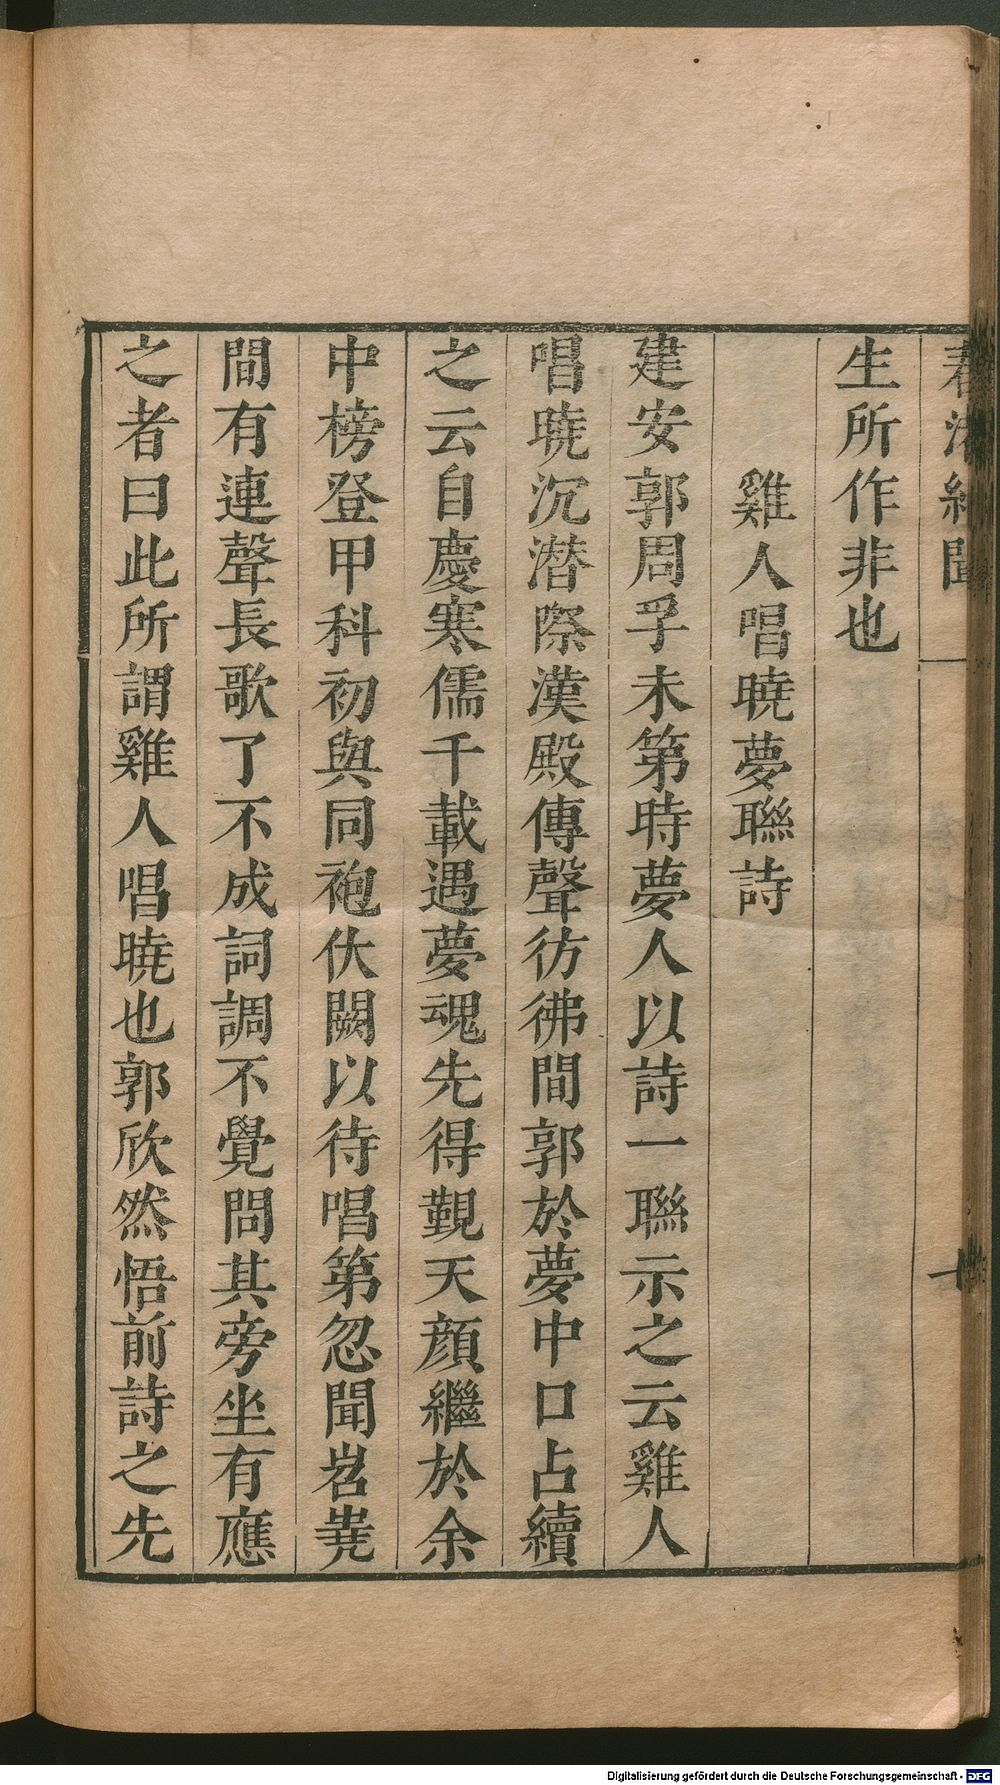 春渚紀聞
生所作非也
雞人唱曉夢聯詩
建安郭周孚未第時夢人以詩一聯示之云雞人
唱曉沉潛際漢殿傳聲彷彿間郭於夢中口占續
之云自慶寒儒千載遇夢魂先得覲天顔繼於余
中榜登甲科初與同袍伏闕以待唱第忽聞岧嶤
間有連聲長歌了不成詞調不覺問其旁坐有應
之者曰此所謂雞人唱曉也郭欣然悟前詩之先
Digitalisierung gefördert durch die Deutsche Forschungsgemeinschaft - DFG